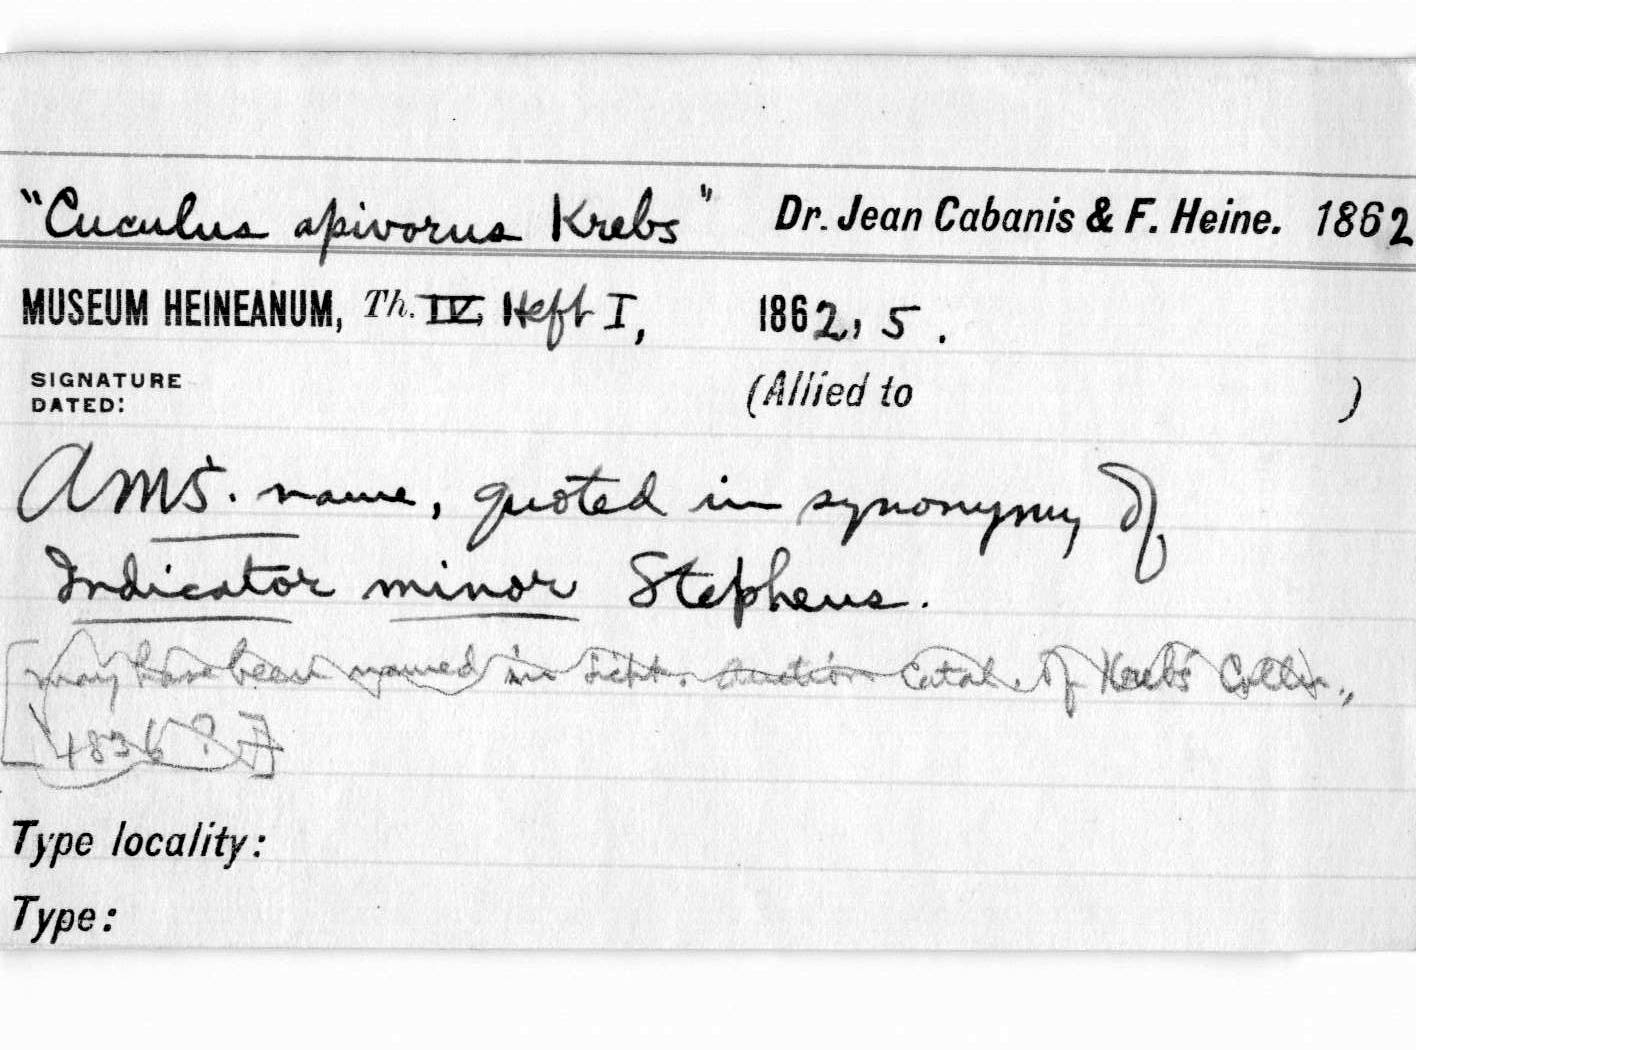 "Cuculus apivorus Krebs" Dr. Jean Cabanis & F. Heine. 1862
MUSEUM HEINEANUM, Th. IV, Heft I, 1862, 5.
SIGNATURE
DATED: (Allied to )
A MS. name, quoted in synonymy of
Indicator minor Stephens.
[may have been named in Licht. Auction Catal. of Krebs' Colln.,
1836 ? ]
Type locality:
Type: